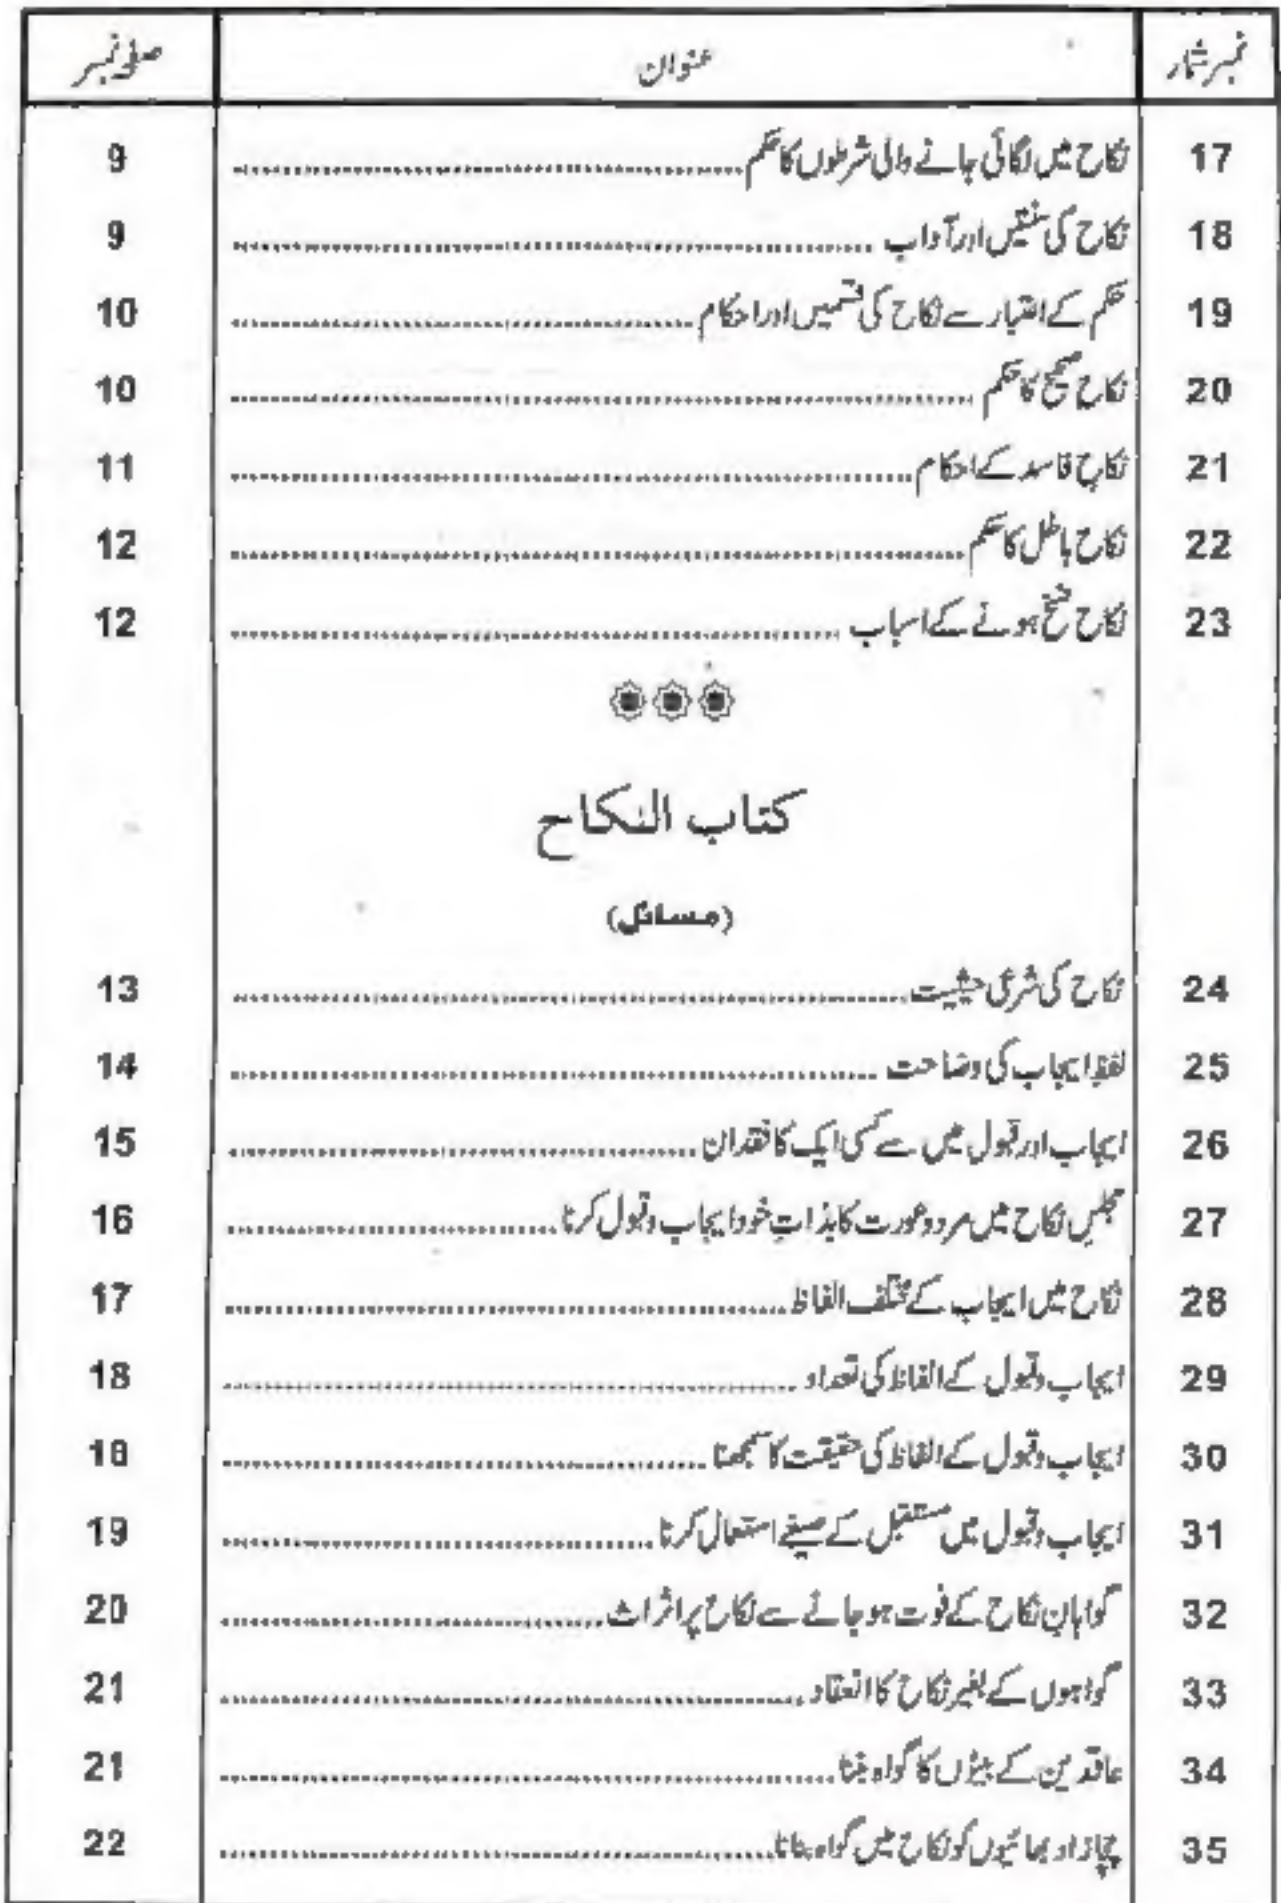 نمبر شمار عنوان صفحہ نمبر
17 نکاح میں لگائی جانے والی شرطوں کا حکم 9
18 نکاح کی سنتیں اور آداب 9
19 حکم کے اعتبار سے نکاح کی قسمیں اور احکام 10
20 نکاح صحیح کا حکم 10
21 نکاحِ فاسد کے احکام 11
22 نکاح باطل کا حکم 12
23 نکاح فسخ ہونے کے اسباب 12
كتاب النكاح
(مسائل)
24 نکاح کی شرعی حیثیت 13
25 لفظِ ایجاب کی وضاحت 14
26 ایجاب اور قبول میں سے کسی ایک کا فقدان 15
27 مجلسِ نکاح میں مرد وعورت کا بذاتِ خود ایجاب وقبول کرنا 16
28 نکاح میں ایجاب کے مختلف الفاظ 17
29 ایجاب وقبول کے الفاظ کی تعداد 18
30 ایجاب وقبول کے الفاظ کی حقیقت کا سمجھنا 18
31 ایجاب وقبول میں مستقبل کے صیغے استعمال کرنا 19
32 گواہانِ نکاح کے فوت ہو جانے سے نکاح پر اثرات 20
33 گواہوں کے بغیر نکاح کا انعقاد 21
34 عاقدین کے بیٹوں کا گواہ بننا 21
35 چچا زاد بھائیوں کو نکاح میں گواہ بنانا 22